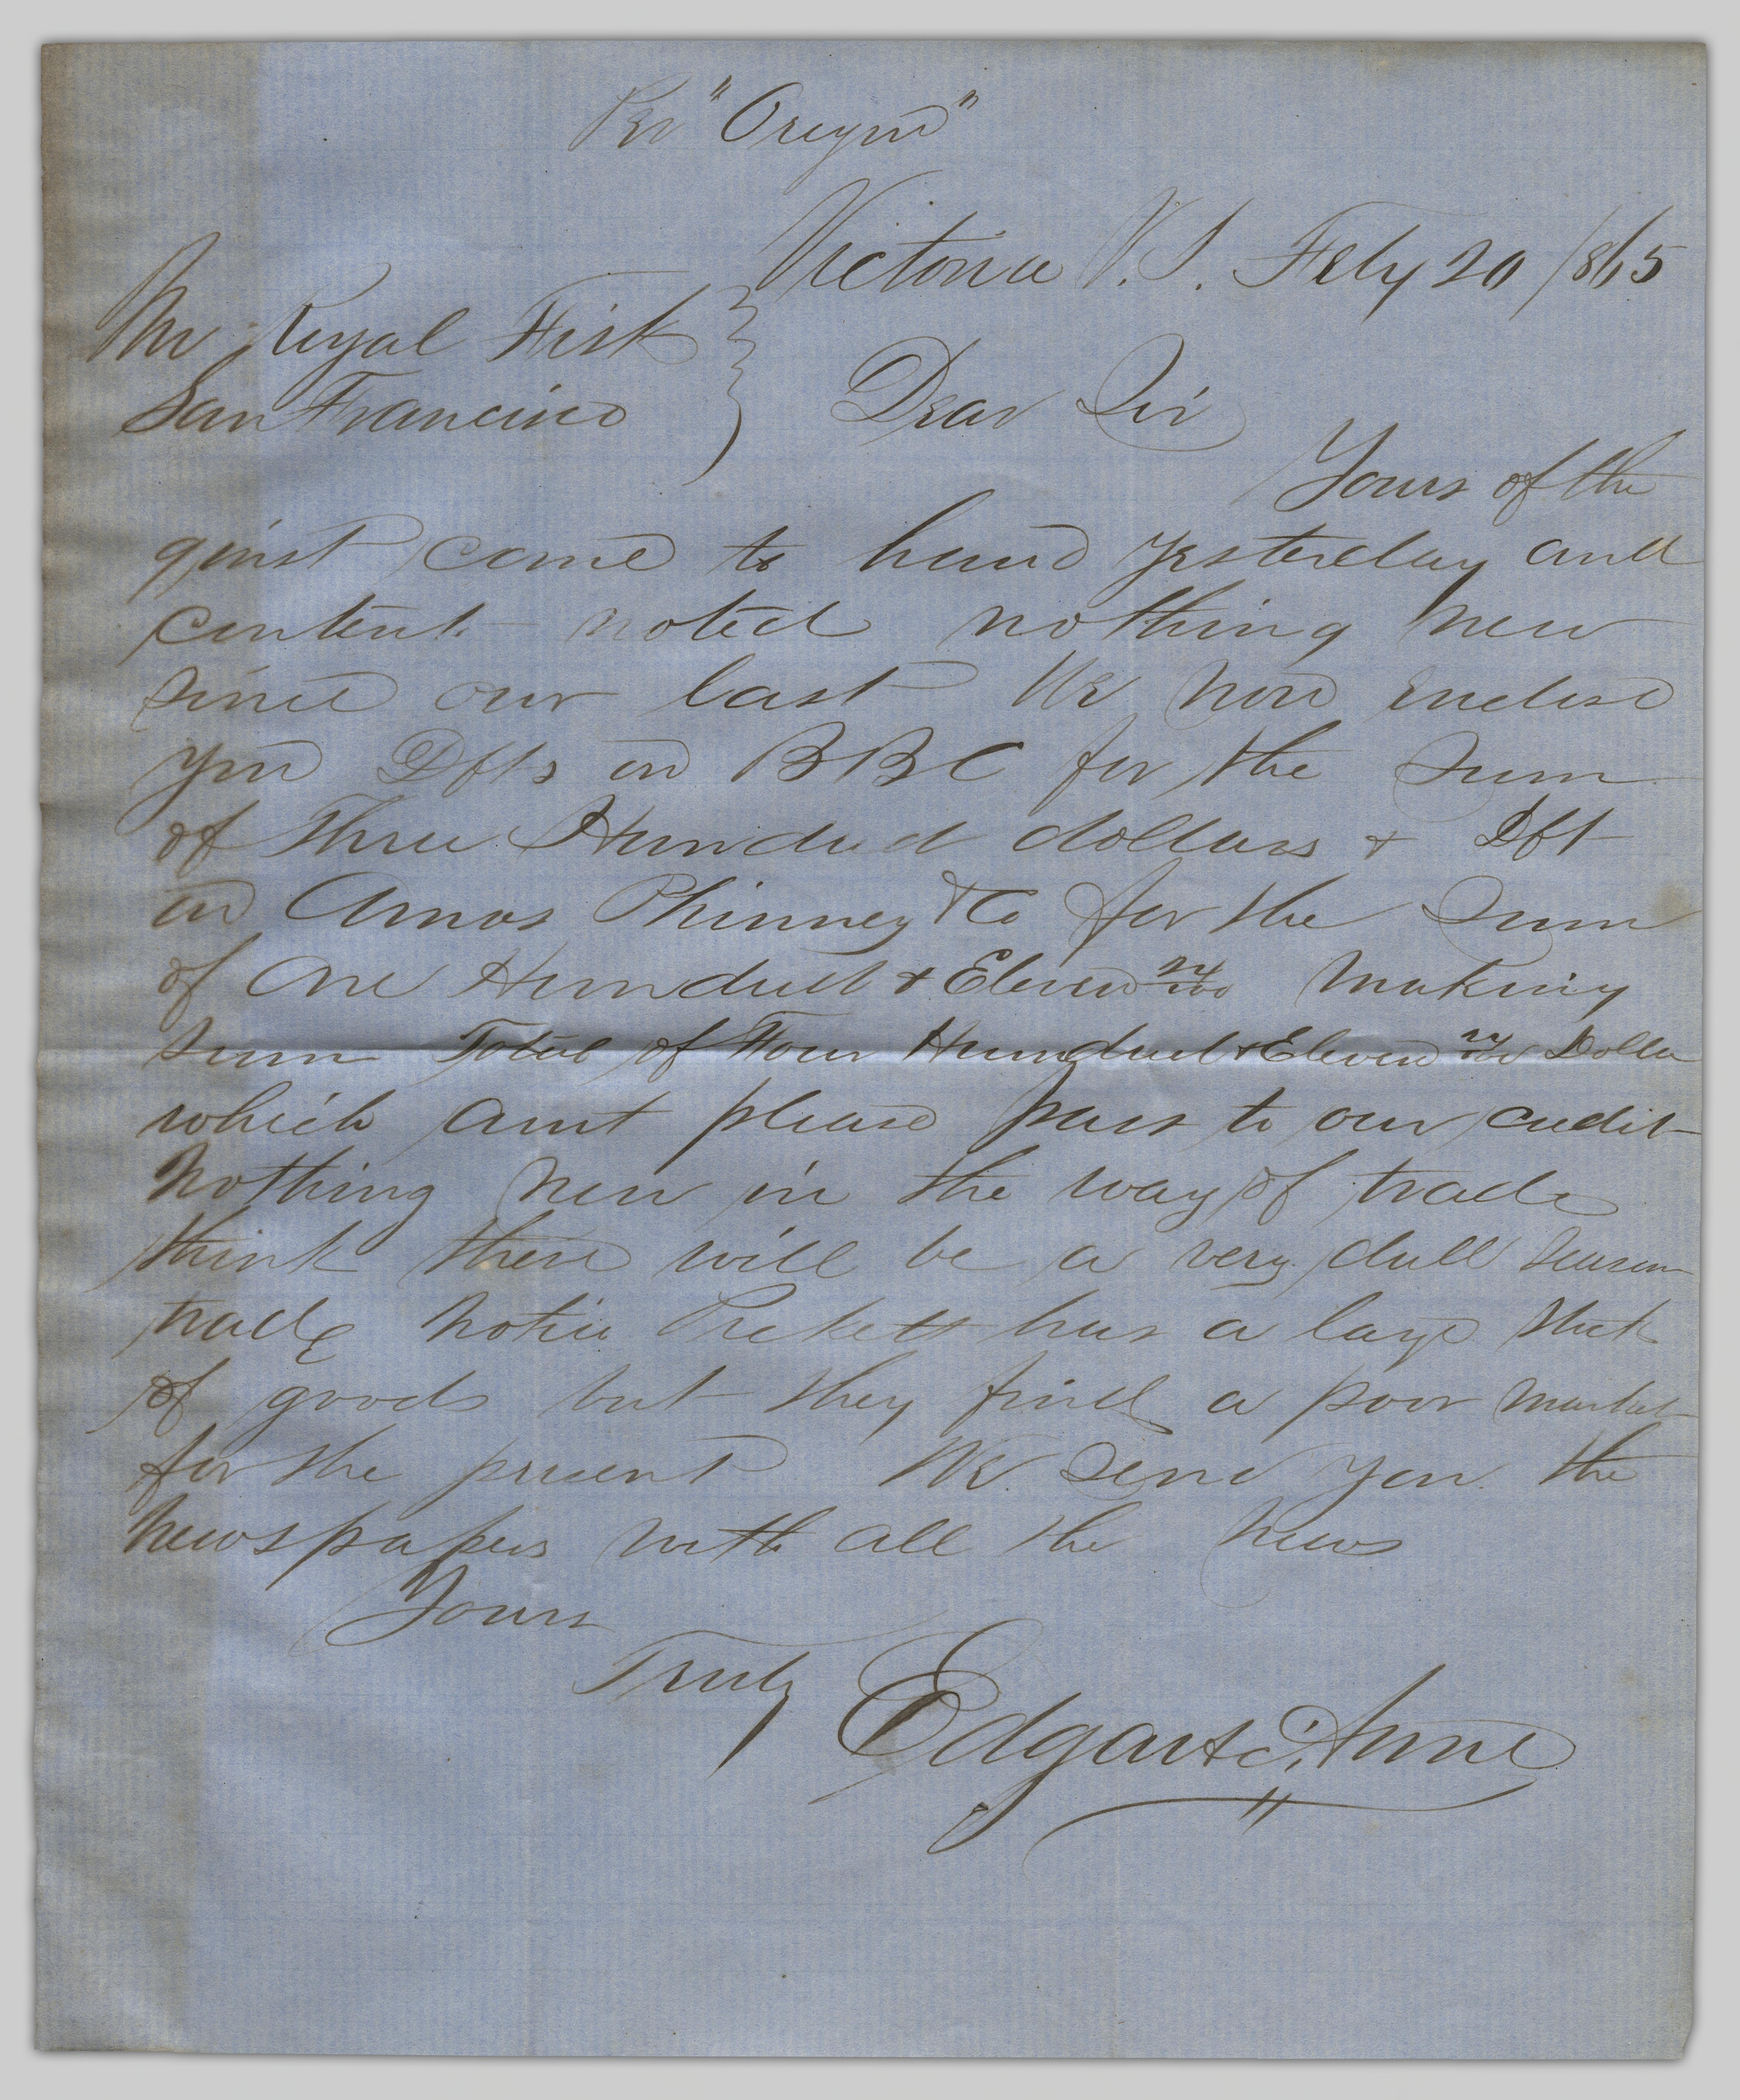 Per "Oregon"
Victoria V.I. Feby 20 1865
Mr Royal Fisk
San Francisco } Dear Sir
Yours of the
9 inst came to hand yesterday and
content noted nothing new
since our last We now enclose
you Dfts on BBC for the Sum
of Three Hundred dollars + Dft
on Amos Phinney & Co for the Sum
of One Hundred + Eleven making
sum Total of Four Hundred + Eleven Dolla
which amt please pass to our credit
Nothing new in the way of trade
think there will be a very dull season
trade notice Pickett has a large stock
of goods but they find a poor market
for the present We send you the
Newspapers with all the news
Yours
Truly Edgar &